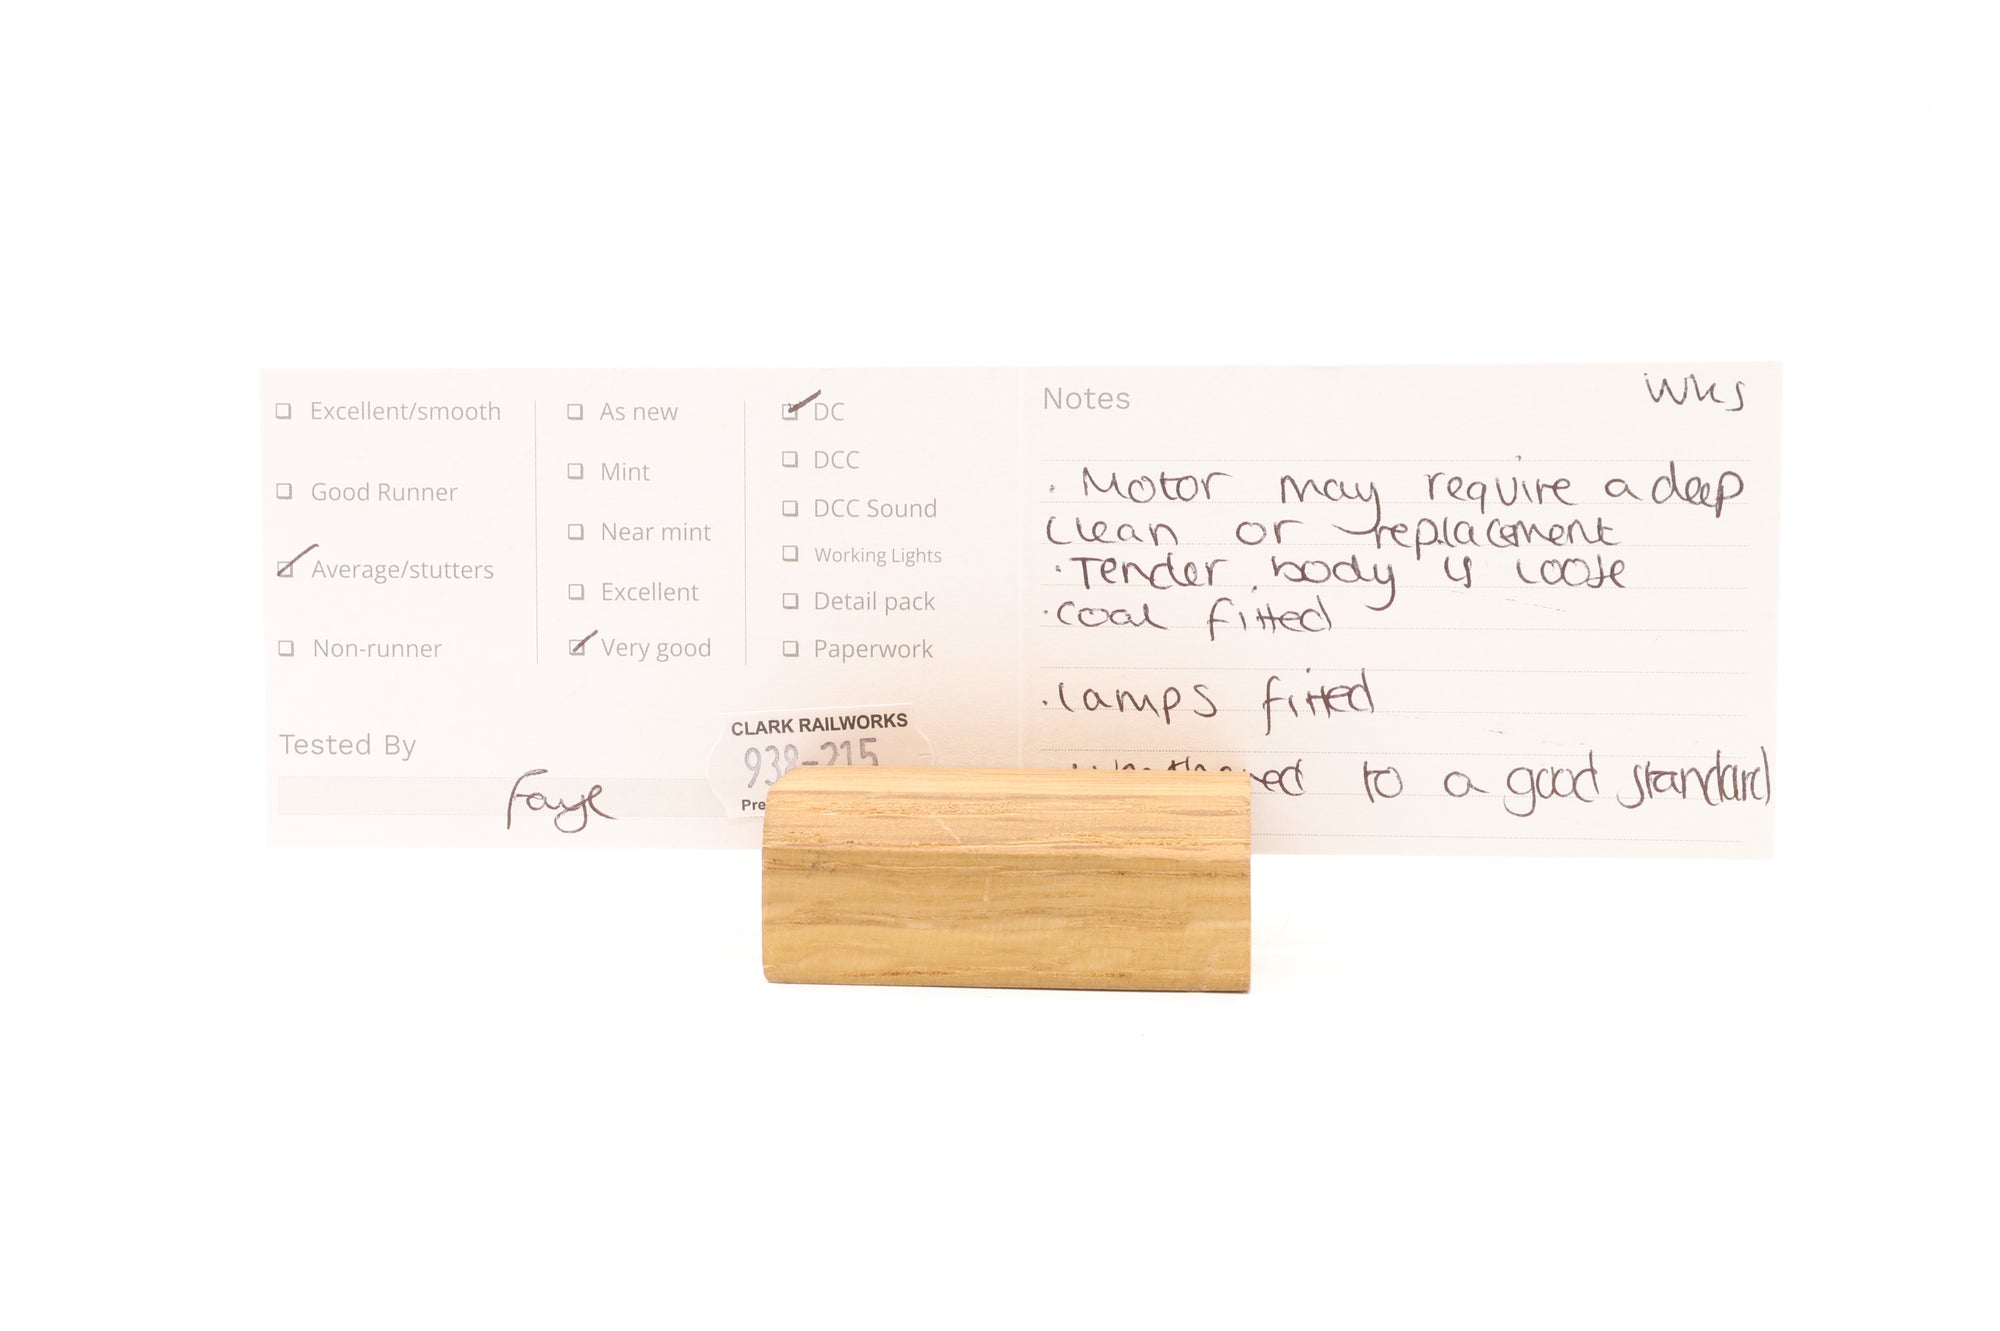 Excellent/smooth
Good Runner
Average/stutters
Non-runner
As new
Mint
Near mint
Excellent
Very good
DC
DCC
DCC Sound
Working Lights
Detail pack
Paperwork
Tested By
Faye
CLARK RAILWORKS
938-215
Notes
WKS
· Motor may require a deep
clean or replacement
· Tender body is loose
· coal fitted
· lamps fitted
to a good standard